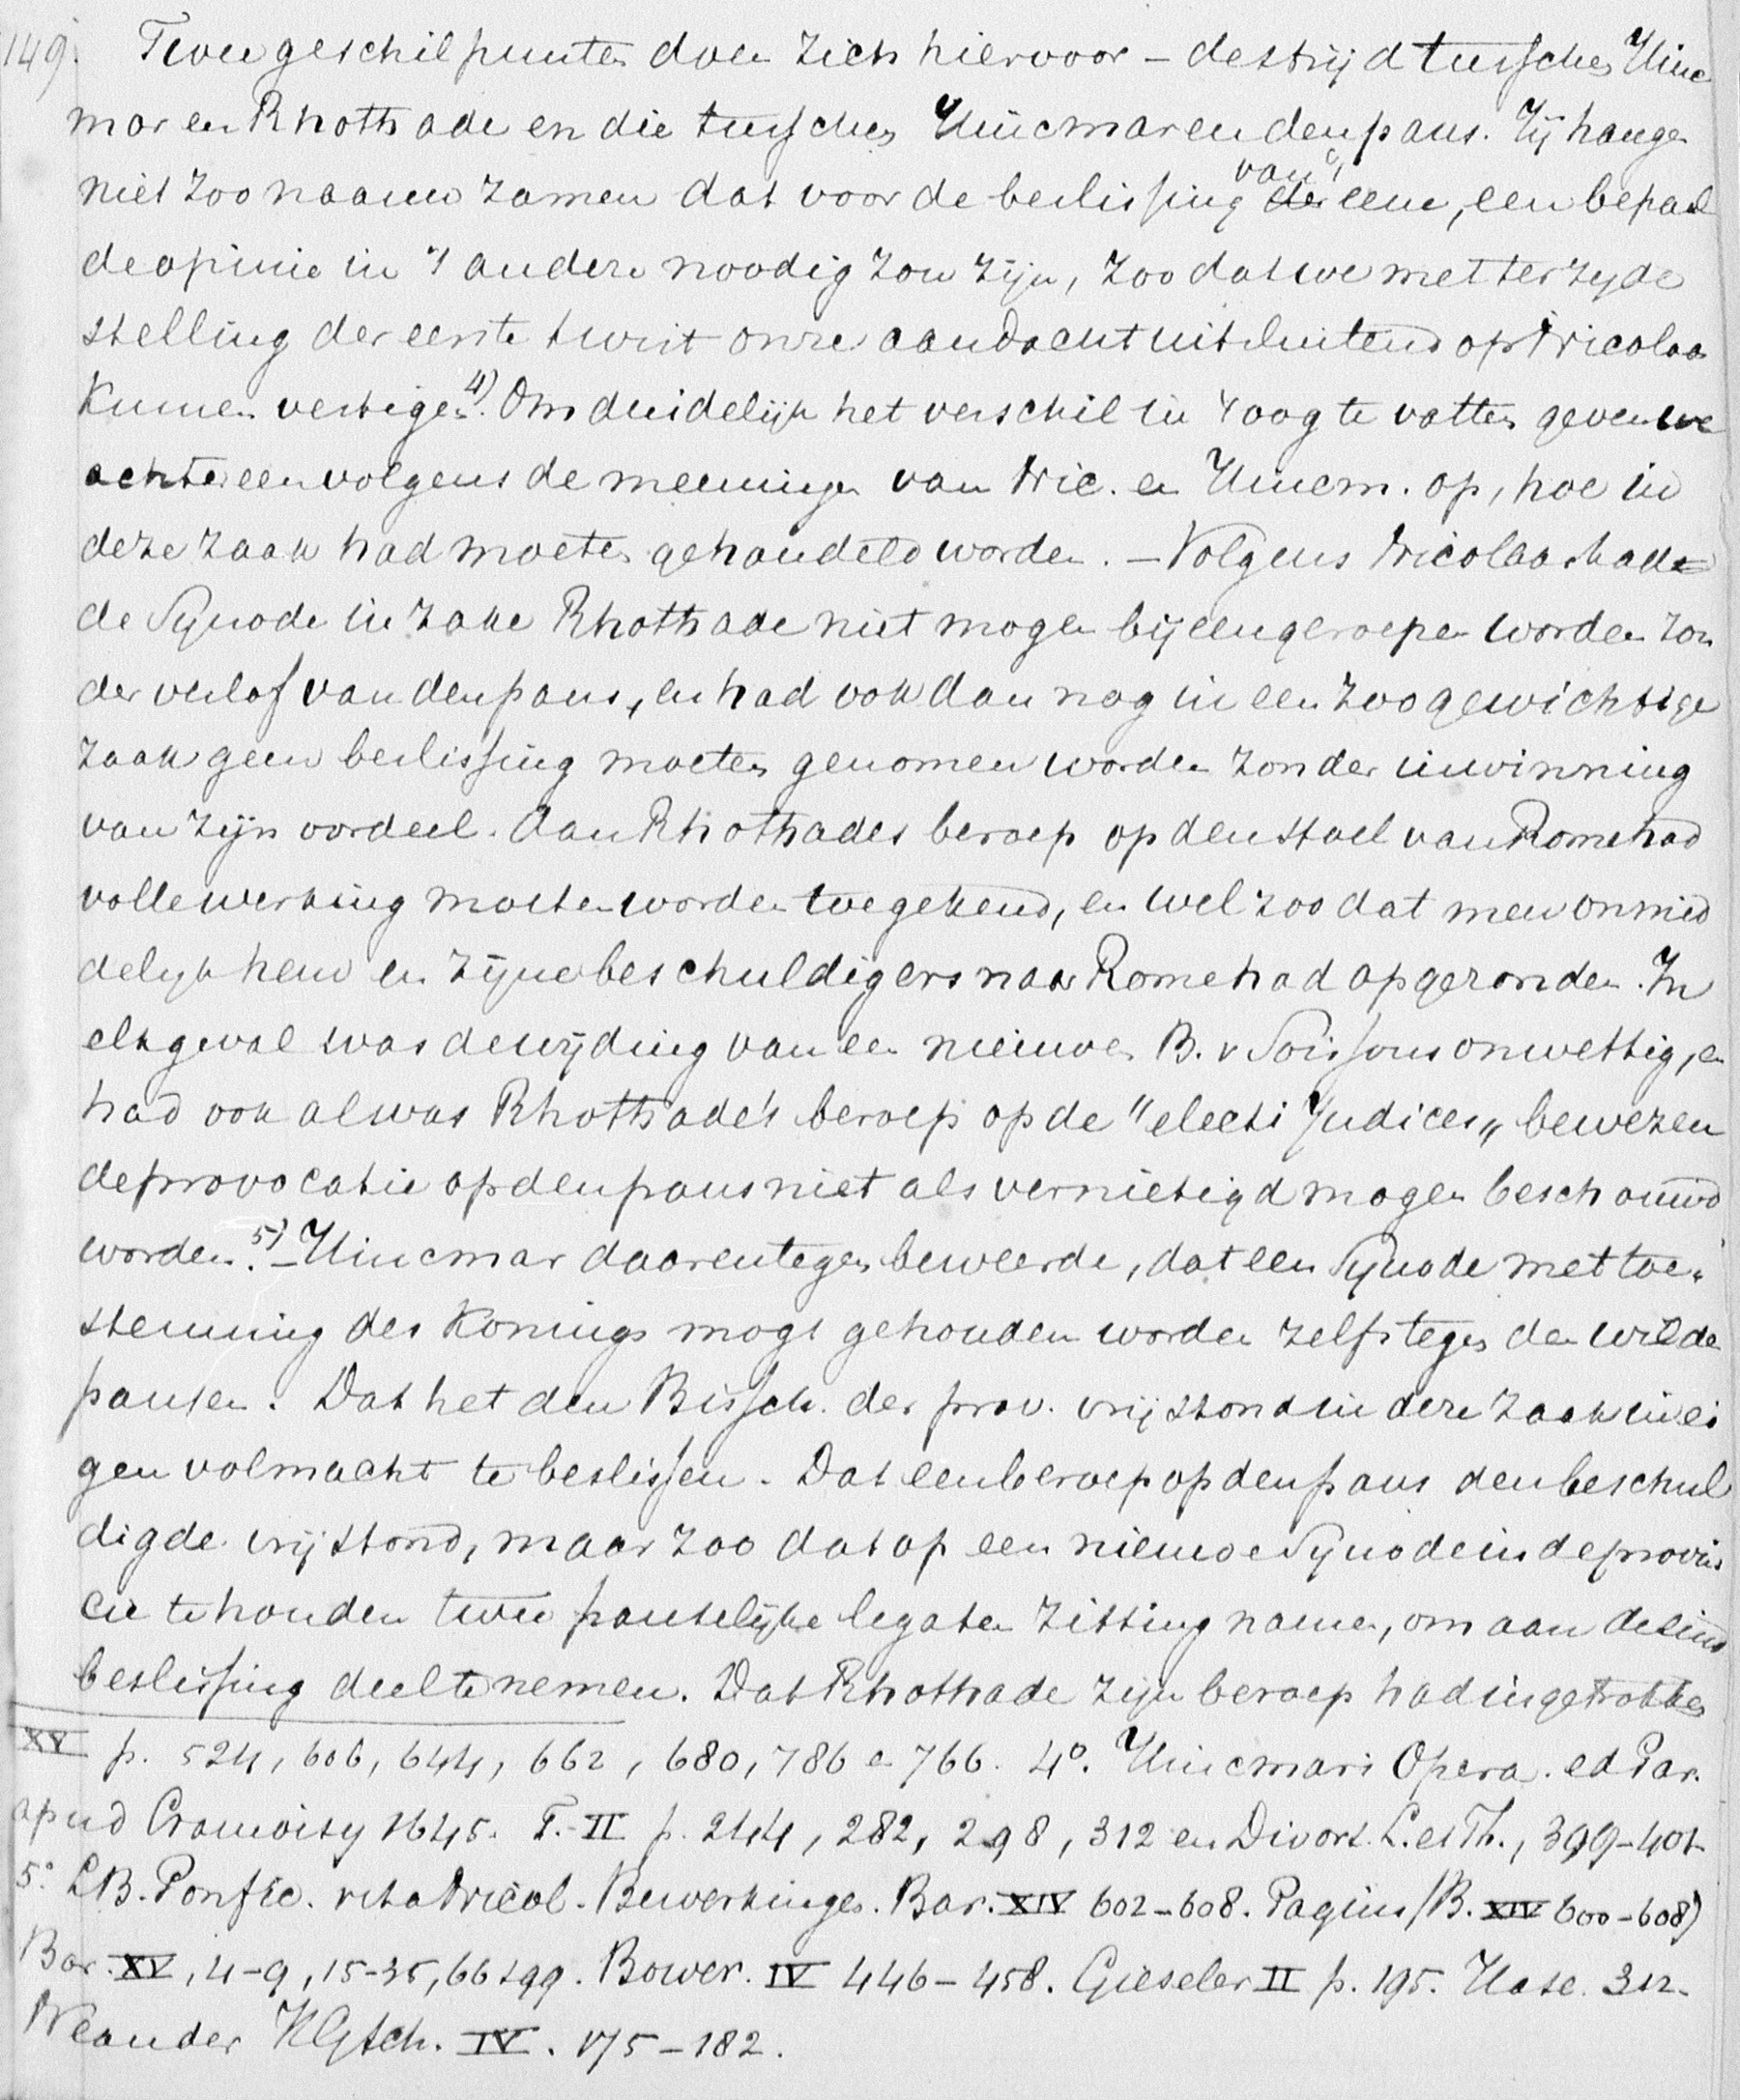 149. Twee geschilpunten doen zich hier voor – de strijd tusschen Hinc
mar en Rhothade en die tusschen Hincmar en den paus. Zij hangen
niet zoo naauw zamen dat voor de beslissing van 't eene, een bepaal
de opinie in 't andere noodig zou zijn, zoo dat we met ter zyde
stelling der eerste twist onze aandacht uitsluitend op Nicolaas
kunnen vestigen 4). Om duidelijk het verschil in 't oog te vatten geven we
achtereenvolgens de meeningen van Nic. en Hincm. op, hoe in
deze zaak had moeten gehandeld worden. – Volgens Nicolaas had
de Synode in zake Rhothade niet mogen bijeengeroepen worden zon
der verlof van den paus, en had ook dan nog in een zoo gewichtige
zaak geen beslissing moeten genomen worden zonder inwinning
van zijn oordeel. Aan Rhothades beroep op den stoel van Rome had
volle werking moeten worden toegekend, en wel zoo dat men onmid
delijk hem en zijne beschuldigers naar Rome had opgezonden. In
elk geval was de wijding van een nieuwen B. v Soissons onwettig, en
had ook al was Rhothade's beroep op de "electi Judices" bewezen
de provocatie op den paus niet als vernietigd mogen beschouwd
worden. 5) – Hincmar daarentegen beweerde, dat een Synode met toe-
stemming des Konings mogt gehouden worden zelfs tegen den wil des
pausen. Dat het den Bissch. der prov. vrijstond in deze zaak in ei
gen volmacht te beslissen. Dat een beroep op den paus den beschul
digde vrijstond, maar zoo dat op een nieuwe Synode in de provin
cie te houden twee pauselijke legaten zitting namen, om aan de eind
beslissing deel te nemen. Dat Rhothade zijn beroep had ingetrokken
XV p. 524, 606, 644, 662, 680, 786 en 766. 4°. Hincmari Opera. ed Par.
apud Cramoisy 1645. T. II p. 244, 282, 298, 312 en Divort. L. et Th., 399-401.
5° LB. Pontfic. vita Nicol. Bewerkingen. Bar. XIV 602-608. Pagius (B. XIV 600-608)
Bar. XV, 4-9, 15-35, 66 199. Bower. IV 446-458. Gieseler II p. 195. Hase. 312.
Neander KGsch. IV. 175-182.